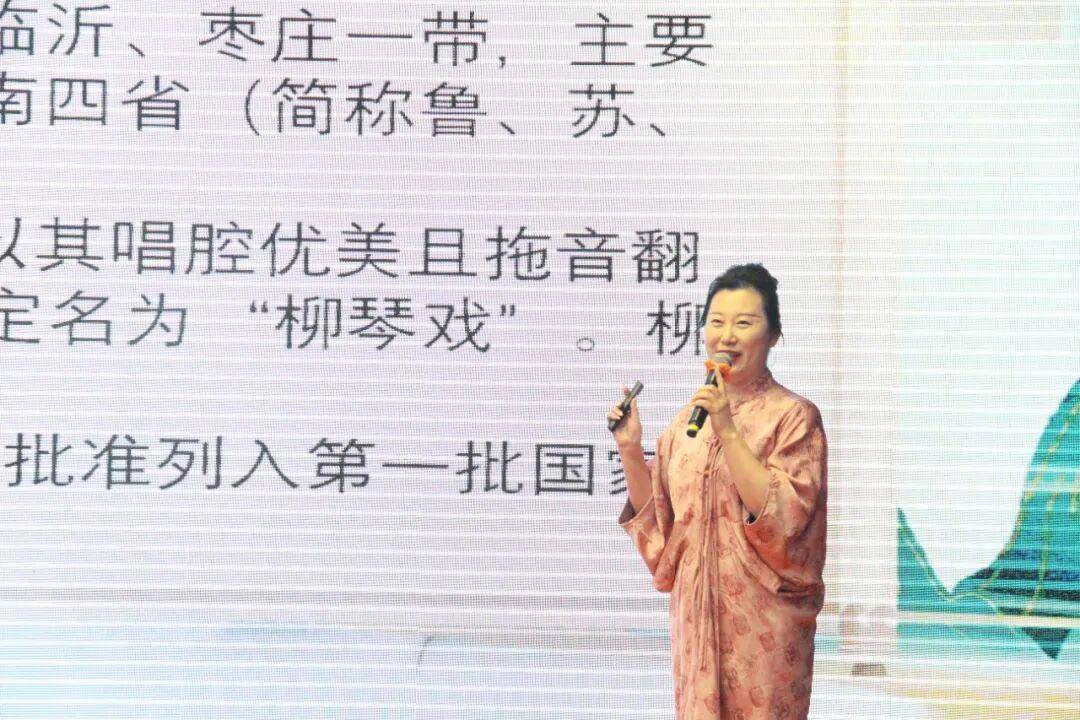 临沂、枣庄一带，主要
南四省（简称鲁、苏、
以其唱腔优美且拖音翻
定名为“柳琴戏”。柳
批准列入第一批国家